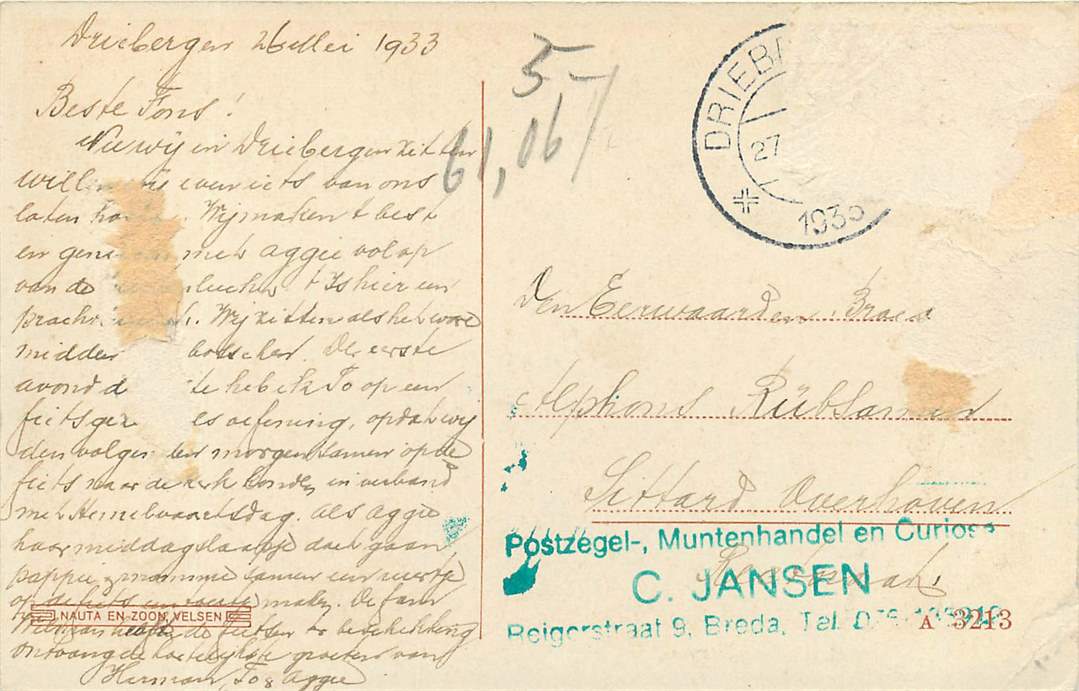 Driebergen 26 Mei 1933
Beste Fons!
Nu wij in Driebergen zitten
willen wij even iets van ons
laten ho. Wij maken t best
en gen met Aggie volop
van de lucht. t Is hier een
pracht. Wij zitten als het ware
midden bosschen. De eerste
avond d te heb ik To op een
fiets gez les oefening, opdat wij
den volgen den morgen samen op de
fiets naar de kerk konden in verband
met Hemelvaartsdag. Als Aggie
haar middagslaapje doet gaan
pappie & mamme samen een uurtje
op de fiets maken. De fam
de fietsen ter beschikking
Ontvang de hartelijkste groeten van
Herman, To & Aggie
NAUTA EN ZOON, VELSEN
5-
61,06
DRIEB
27
1933
Den Eerwaarden Broed
Alphons Rübsamen
Sittard Overhoven
Postzegel-, Muntenhandel en Curiosa
C. JANSEN
Reigerstraat 9, Breda, Tel.
A 3213